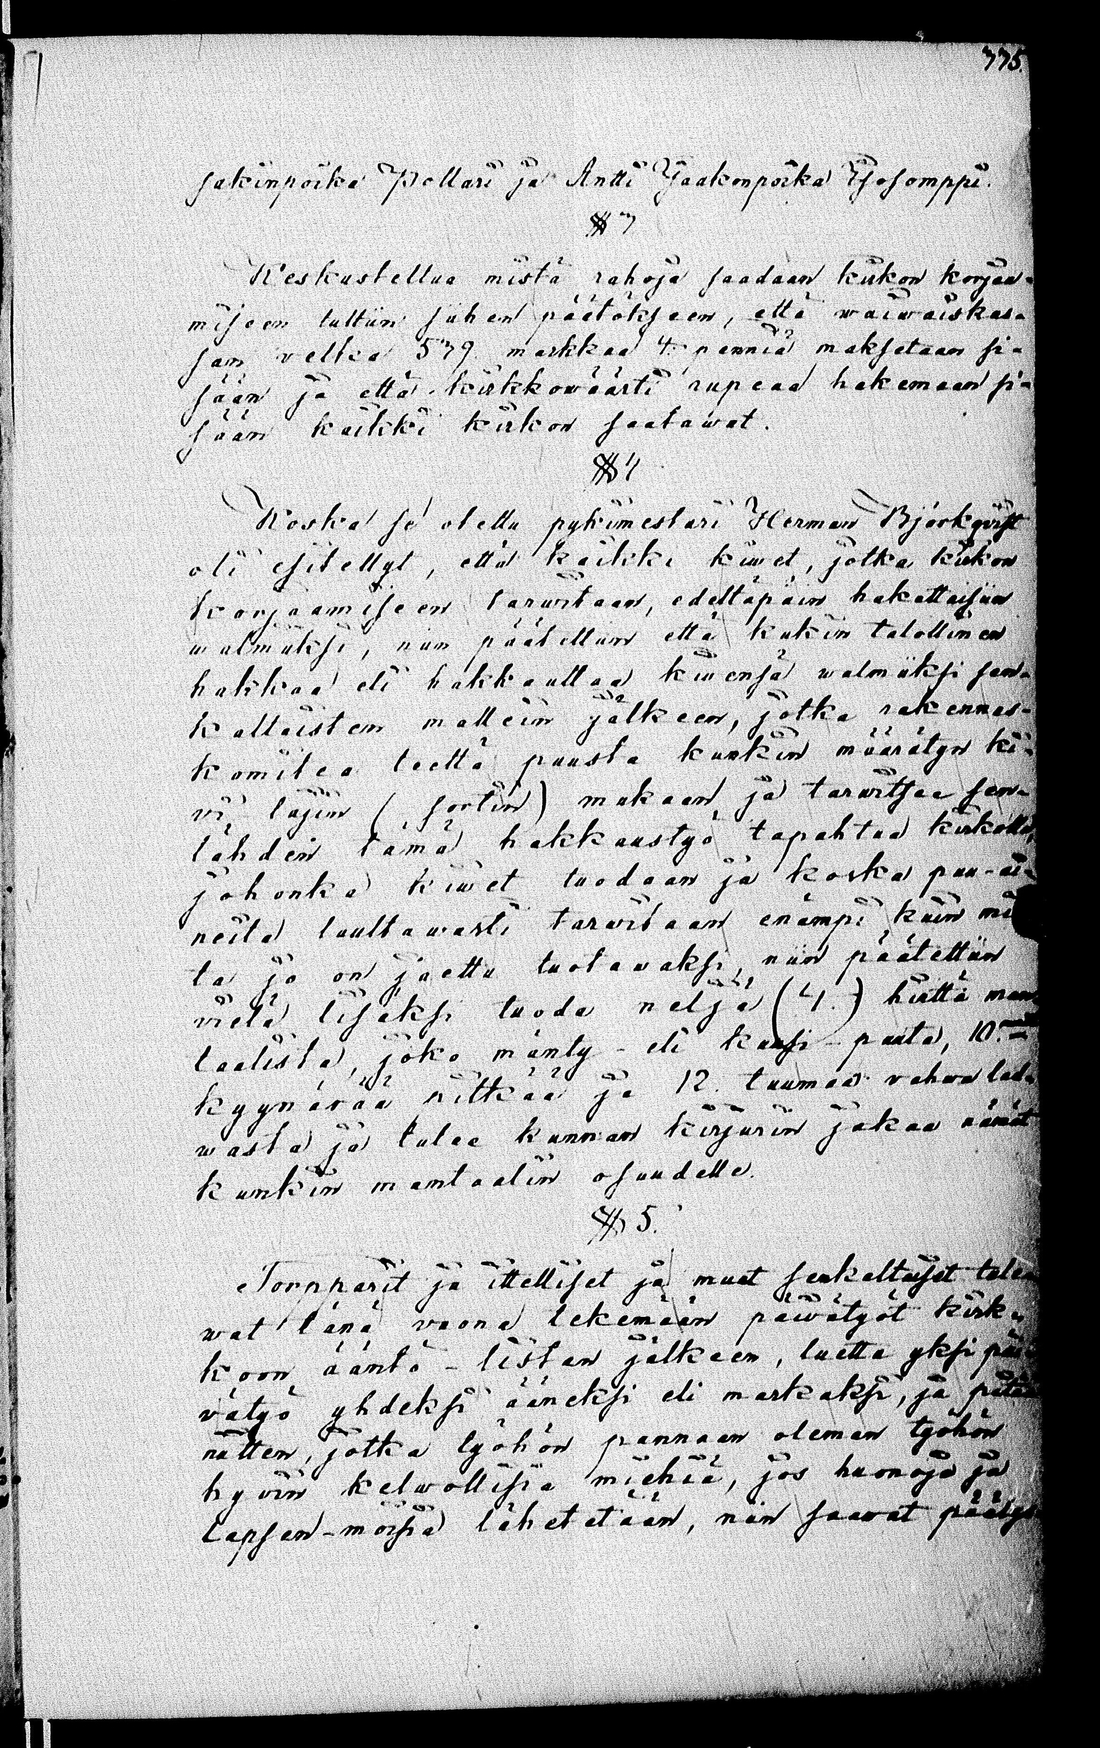 335.
sakinpoika Pollari ja Antti Jaakonpoika Isosomppi.
§ 3
Keskusteltua mistä rahoja saadaan kirkon korjaa-
miseen tultiin siihen päätökseen, että waiwaiskas-
san velka 539 markkaa 4. penniä maksetaan si-
sään ja että kirkkowäärti rupeaa hakemaan si-
sään kaikki kirkon saatawat.
§ 4
Koska se otettu pykimestari Herman Björkqvist
oli esitellyt, että kaikki kiwet, jotka kirkon
korjaamiseen tarwitaan, edeltäpäin hakattaisiin
walmiiksi, niin päätettiin että kukin talollinen
hakkaa eli hakkauttaa kiwensä walmiiksi sen-
kaltaisten mallein jälkeen, jotka rakennus-
komitea teettä puusta kunkin määrätyn ki-
vi-lajin (sortin) mukaan ja tarwitsee sen-
tähden tämä hakkaustyö tapahtua kirkolla,
johonka kiwet tuodaan ja koska puu-ai-
neita luultawasti tarwitaan enämpi kuin mi
tä jo on jaettu tuotawaksi, niin päätettiin
vielä lisäksi tuoda neljä (4.) hirttä man-
taalista, joko mänty- eli kuusi-puuta, 10.
kyynärää pitkää ja 12. tuumaa vahwa lat-
wasta ja tulee kunnan kirjurin jakaa nämät
kunkin mantaalin osuudelle.
§ 5.
Torpparit ja ittelliset ja muut senkaltaiset tule-
wat tänä vuona tekemään päiwätyöt kirk-
koon ääntö-listan jälkeen, luettu yksi päi-
vätyö yhdeksi ääneksi eli markaksi, ja pitää
niitten, jotka työhön pannaan oleman työhön
hyvin kelwollisia miehiä, jos huonoja ja
lapsen-moisia lähetetään, niin saavat päätys-